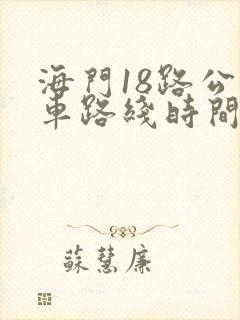 海門18路公
車路綫時間
蘇慧廉